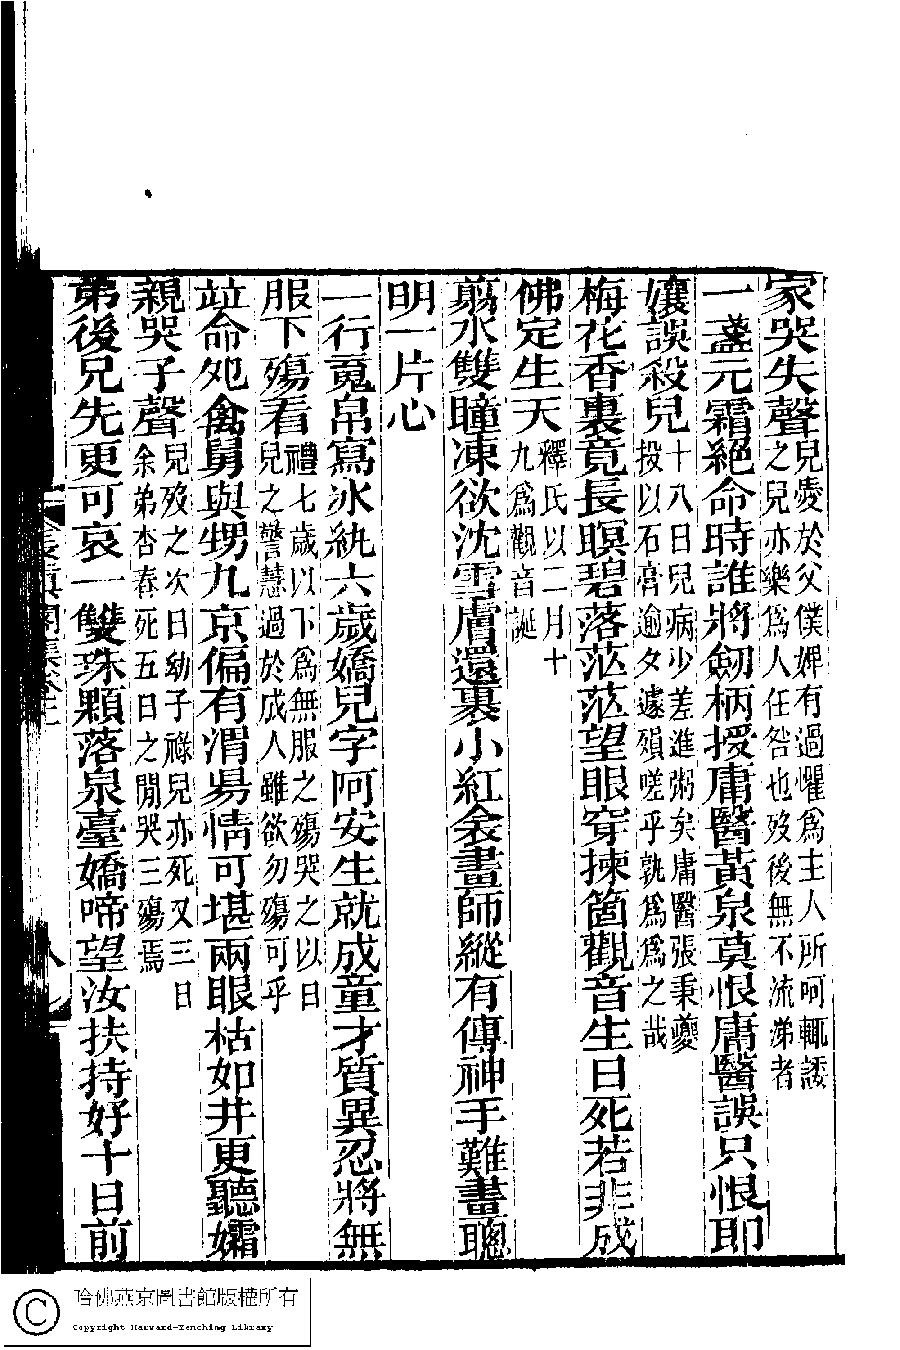 家哭失聲兒處於父僕婢有過懼爲主人所呵輒諉之兒亦樂爲人任咎也歿後無不流涕者
一盞元霜絕命時誰將劒柄授庸醫黃泉莫恨庸醫誤只恨耶
孃誤殺兒十八日兒病少差進粥矣庸醫張秉夔投以石膏逾夕遽殞嗟乎孰爲爲之哉
梅花香裏竟長瞑碧落茫茫望眼穿揀箇觀音生日死若非成
佛定生天釋氏以二月十九爲觀音誕
翦水雙瞳凍欲沈雪膚還裹小紅衾畫師縱有傳神手難畫聰
明一片心
一行蒐帛寫冰紈六歲嬌兒字阿安生就成童才質異忍將無
服下殤看禮七歲以下爲無服之殤哭之以日兒之警慧過於成人雖欲勿殤可乎
竝命処禽舅與甥九京偏有渭昜情可堪兩眼枯如井更聽孀
親哭子聲兒歿之次日幼子祿兒亦死又三日余弟杏春死五日之閒哭三殤焉
弟後兄先更可哀一雙珠顆落泉臺嬌啼望汝扶持好十日前
長真閣集卷七
八
哈佛燕京圖書館版權所有
Copyright Harvard-Yenching Library